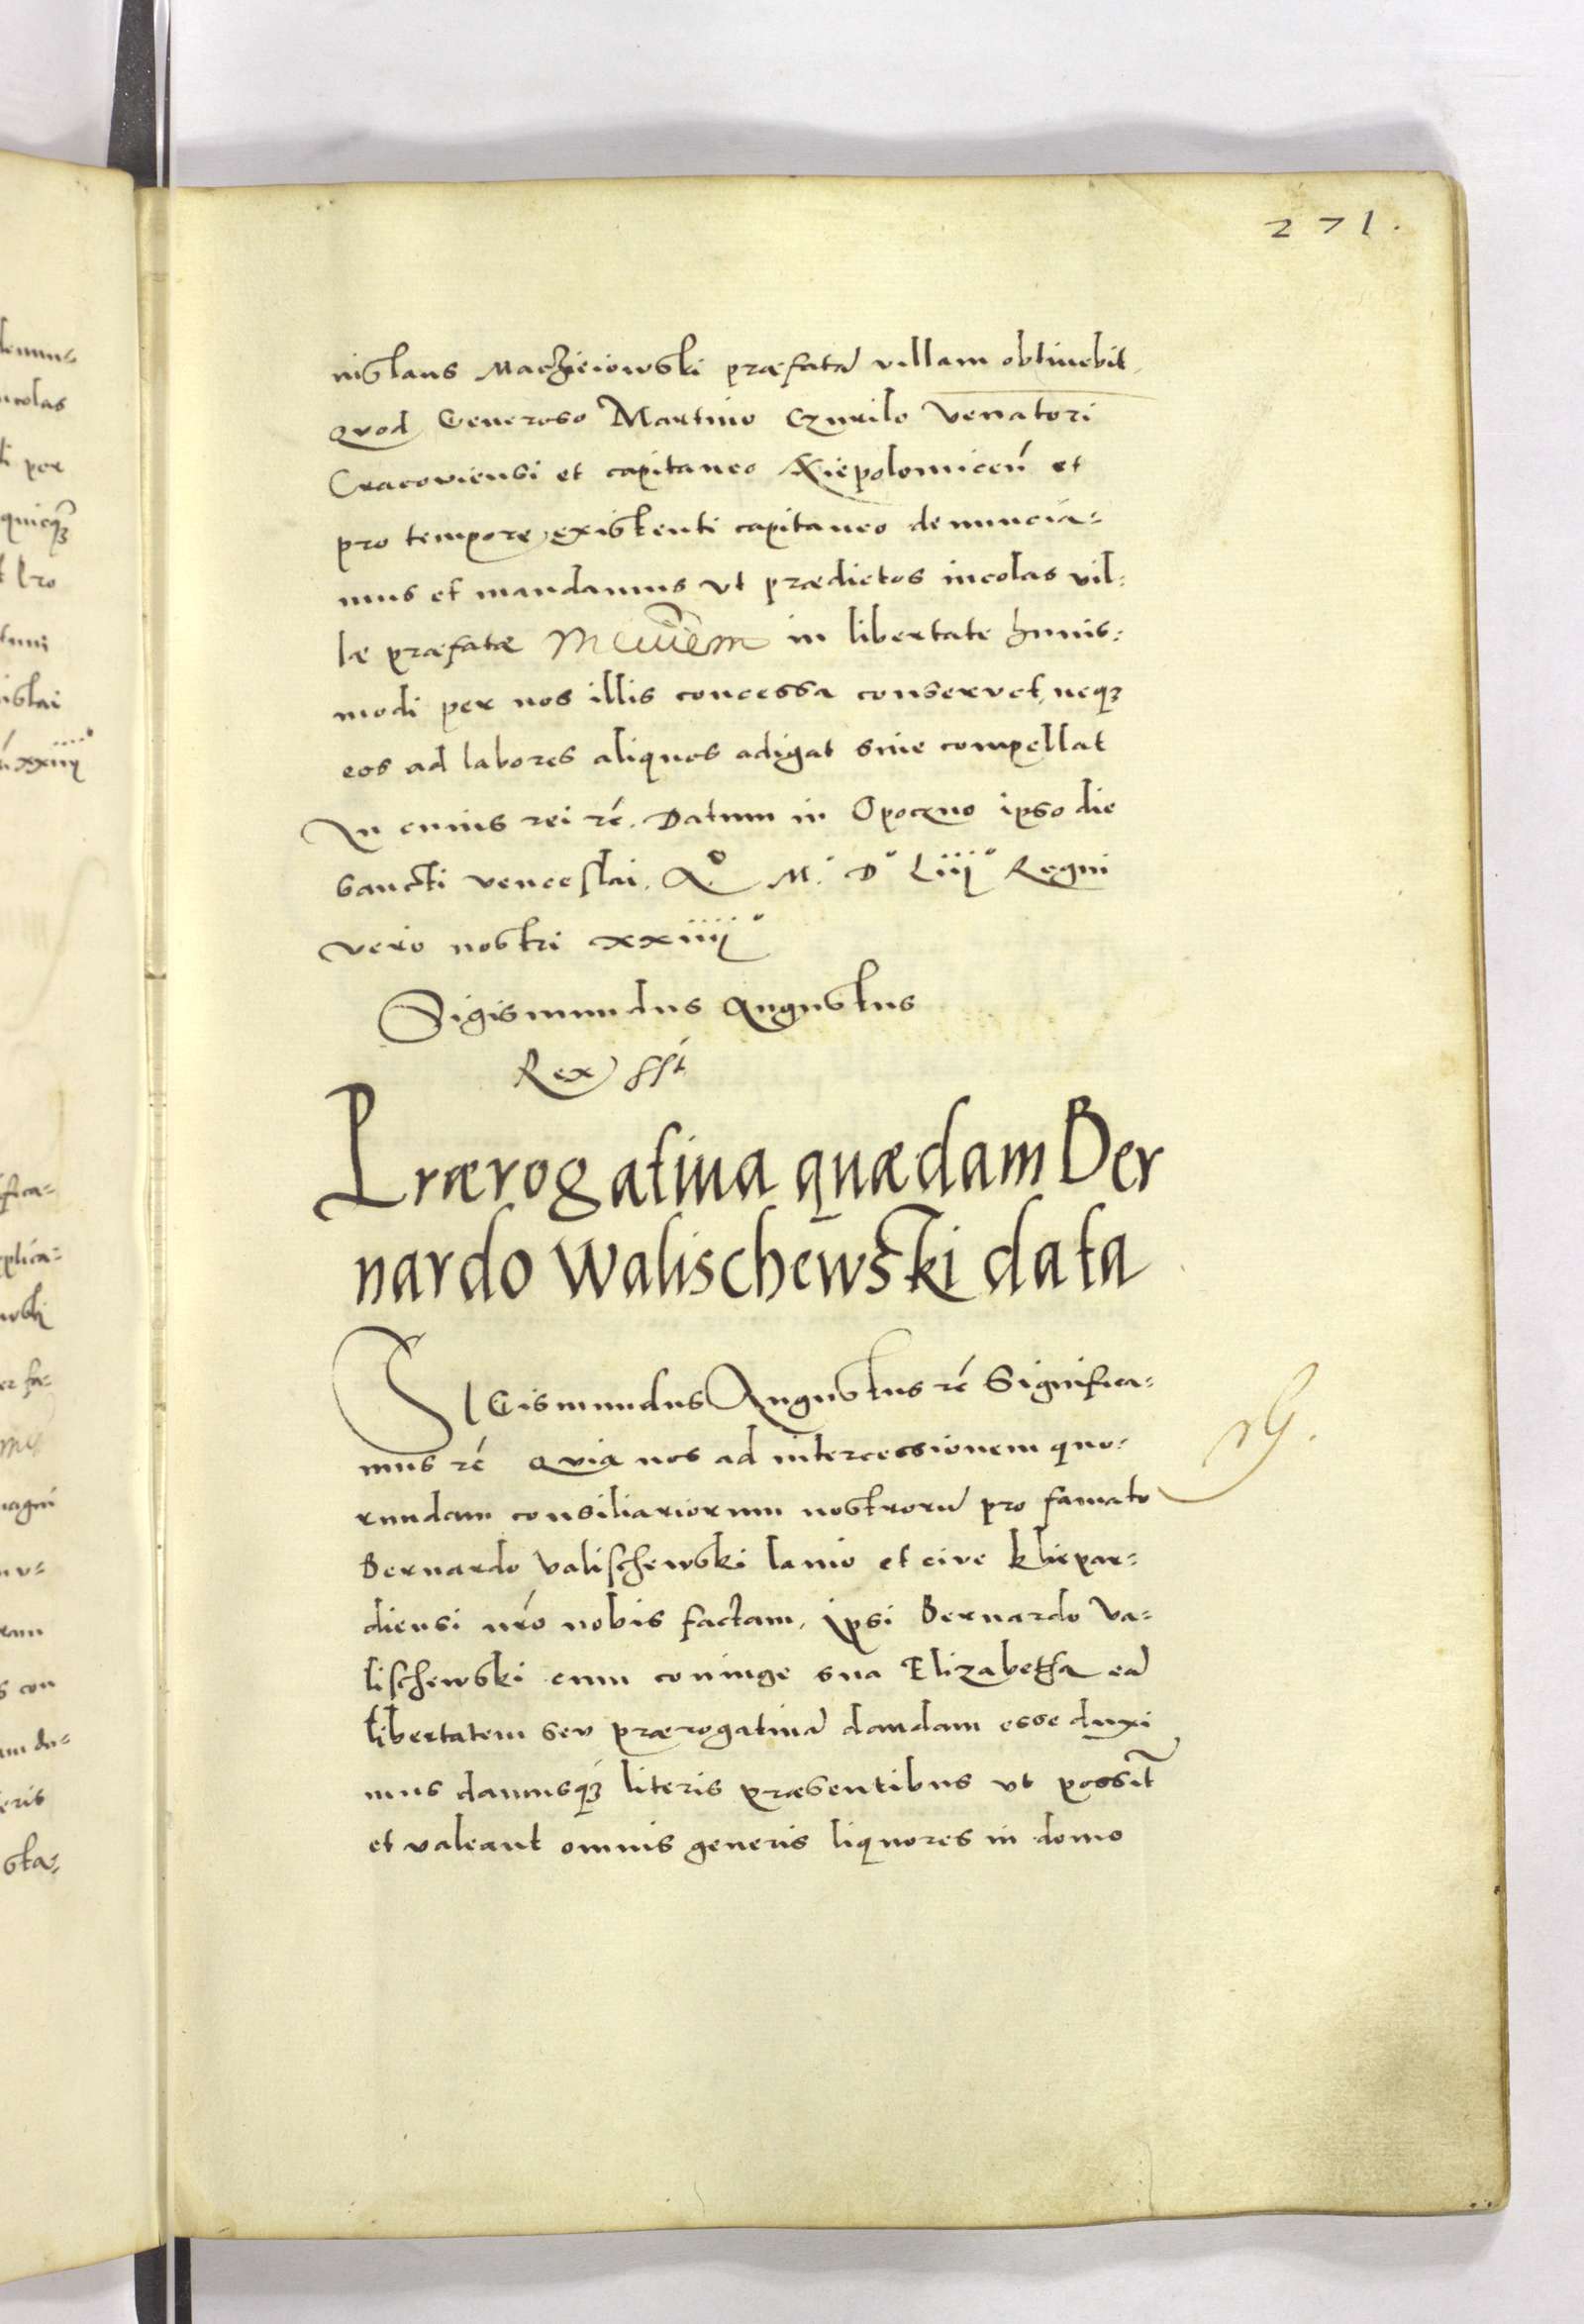 271.
nislaus Maczieiowski præfatā villam obtinebit.
Quod Generoso Martino Czurilo Venatori
Cracoviensi et capitaneo Niepolomiceń et
pro tempore existenti capitaneo denuncia=
mus et mandamus vt prædictos incolas vil=
læ præfatæ in libertate huius=
modi per nos illis concessa conservet, neqꝫ
eos ad labores aliquos adigat siue compellat
In cuius rei rć. Datum in Opoczno ipso die
Sancti Venceslai. Aº M.º Dº Liiijº Regni
vero nostri xxiiijº
Sigismundus Augustus
Rex sst
Prærogatiua quædam Ber
nardo Walischewski data
SIGismundus Augustus rć Significa=
mus rć Quia nos ad intercessionem quo=
rundam consiliariorum nostrorū pro famato
Bernardo Valischewski lanio et cive Kliepar=
diensi nr̄o nobis factam, ipsi Bernardo Va=
lischewski cum coniuge sua Elizabetha eā
libertatem seu prærogatiuā dandam esse duxi
mus damusqꝫ literis præsentibus vt possīt
et valeant omnis generis liquores in domo